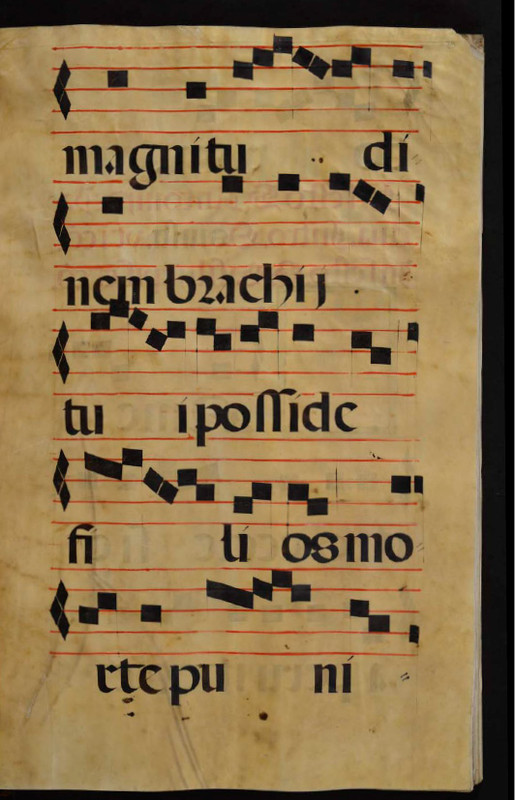 magnitu di
nem brachij
tu i posside
fi li os mo
rte pu ni